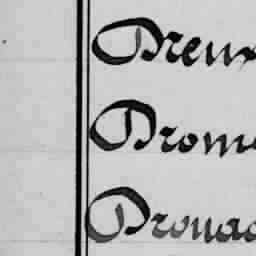 Dreux
Drome
Drouac